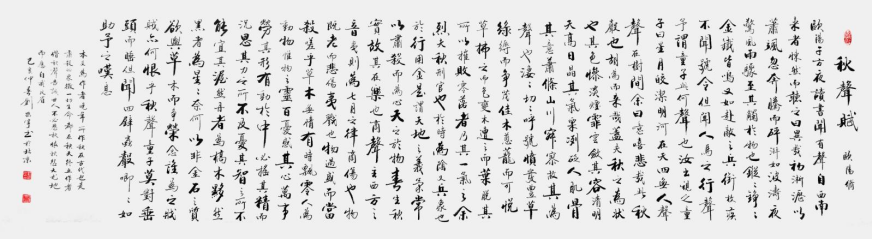 秋聲賦 歐陽脩
歐陽子方夜讀書聞有聲自西南
來者悚然而聽之曰異哉初淅瀝以
蕭颯忽奔騰而砰湃如波濤夜
驚風雨驟至其觸於物也鏦鏦錚錚
金鐵皆鳴又如赴敵之兵銜枚疾走
不聞號令但聞人馬之行聲
予謂童子此何聲也汝出視之童
子曰星月皎潔明河在天四無人聲
聲在樹間余曰噫嘻悲哉此秋
聲也胡為而來哉蓋夫秋之為狀
也其色慘淡煙霏雲斂其容清明
天高日晶其氣慄冽砭人肌骨
其意蕭條山川寂寥故其為
聲也淒淒切切呼號憤發豐草
綠縟而爭茂佳木蔥蘢而可悅
草拂之而色變木遭之而葉脫其
所以摧敗零落者乃其一氣之餘
烈夫秋刑官也於時為陰又兵象也
於行用金是謂天地之義氣常
以肅殺而為心天之於物春生秋
實故其在樂也商聲主西方之
音夷則為七月之律商傷也物
既老而悲傷夷戮也物過盛而當
殺嗟乎草木無情有時飄零人為
動物惟物之靈百憂感其心萬事
勞其形有動於中必搖其精而
況思其力之所不及憂其智之所不
能宜其渥然丹者為槁木黟然
黑者為星星奈何以非金石之質
欲與草木而爭榮念誰為之戕
賊亦何恨乎秋聲童子莫對垂
頭而睡但聞四壁蟲聲唧唧如
助予之嘆息